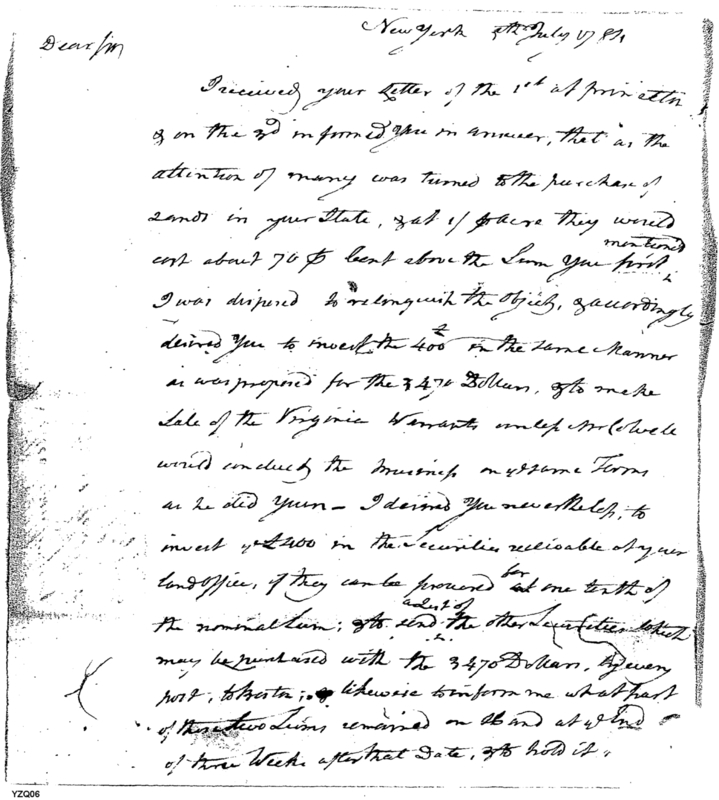 New York 5th July 1784
Dear Sir
I received your Letter of the 1st at princeton
& on the 3d informed you in answer, that as the
attention of many was turned to the purchase of
Lands in your State, & at 1/ p Acre they would
cost about 70 p Cent above the Sum You first
mentioned
I was disposed to relinquish the Object, & accordingly
desired You to invest the 400 £ in the same Manner
as was proposed for the 3470 Dollars, & to make
Sale of the Virginia Warrants unless Mr
would conduct the business on ye same Terms
as he did Yours - I desired You nevertheless, to
invest ye £400 in the Securities receivable at your
land office, if they can be procured for one tenth of
the nominal Sum; & to send a List of the other Securities which
may be purchased with the 3470 Dollars, by every
post, to Boston; & likewise to inform me what part
of these two Sums remained on Hand at ye End
of three Weeks after that Date, & to hold it
YZQ06